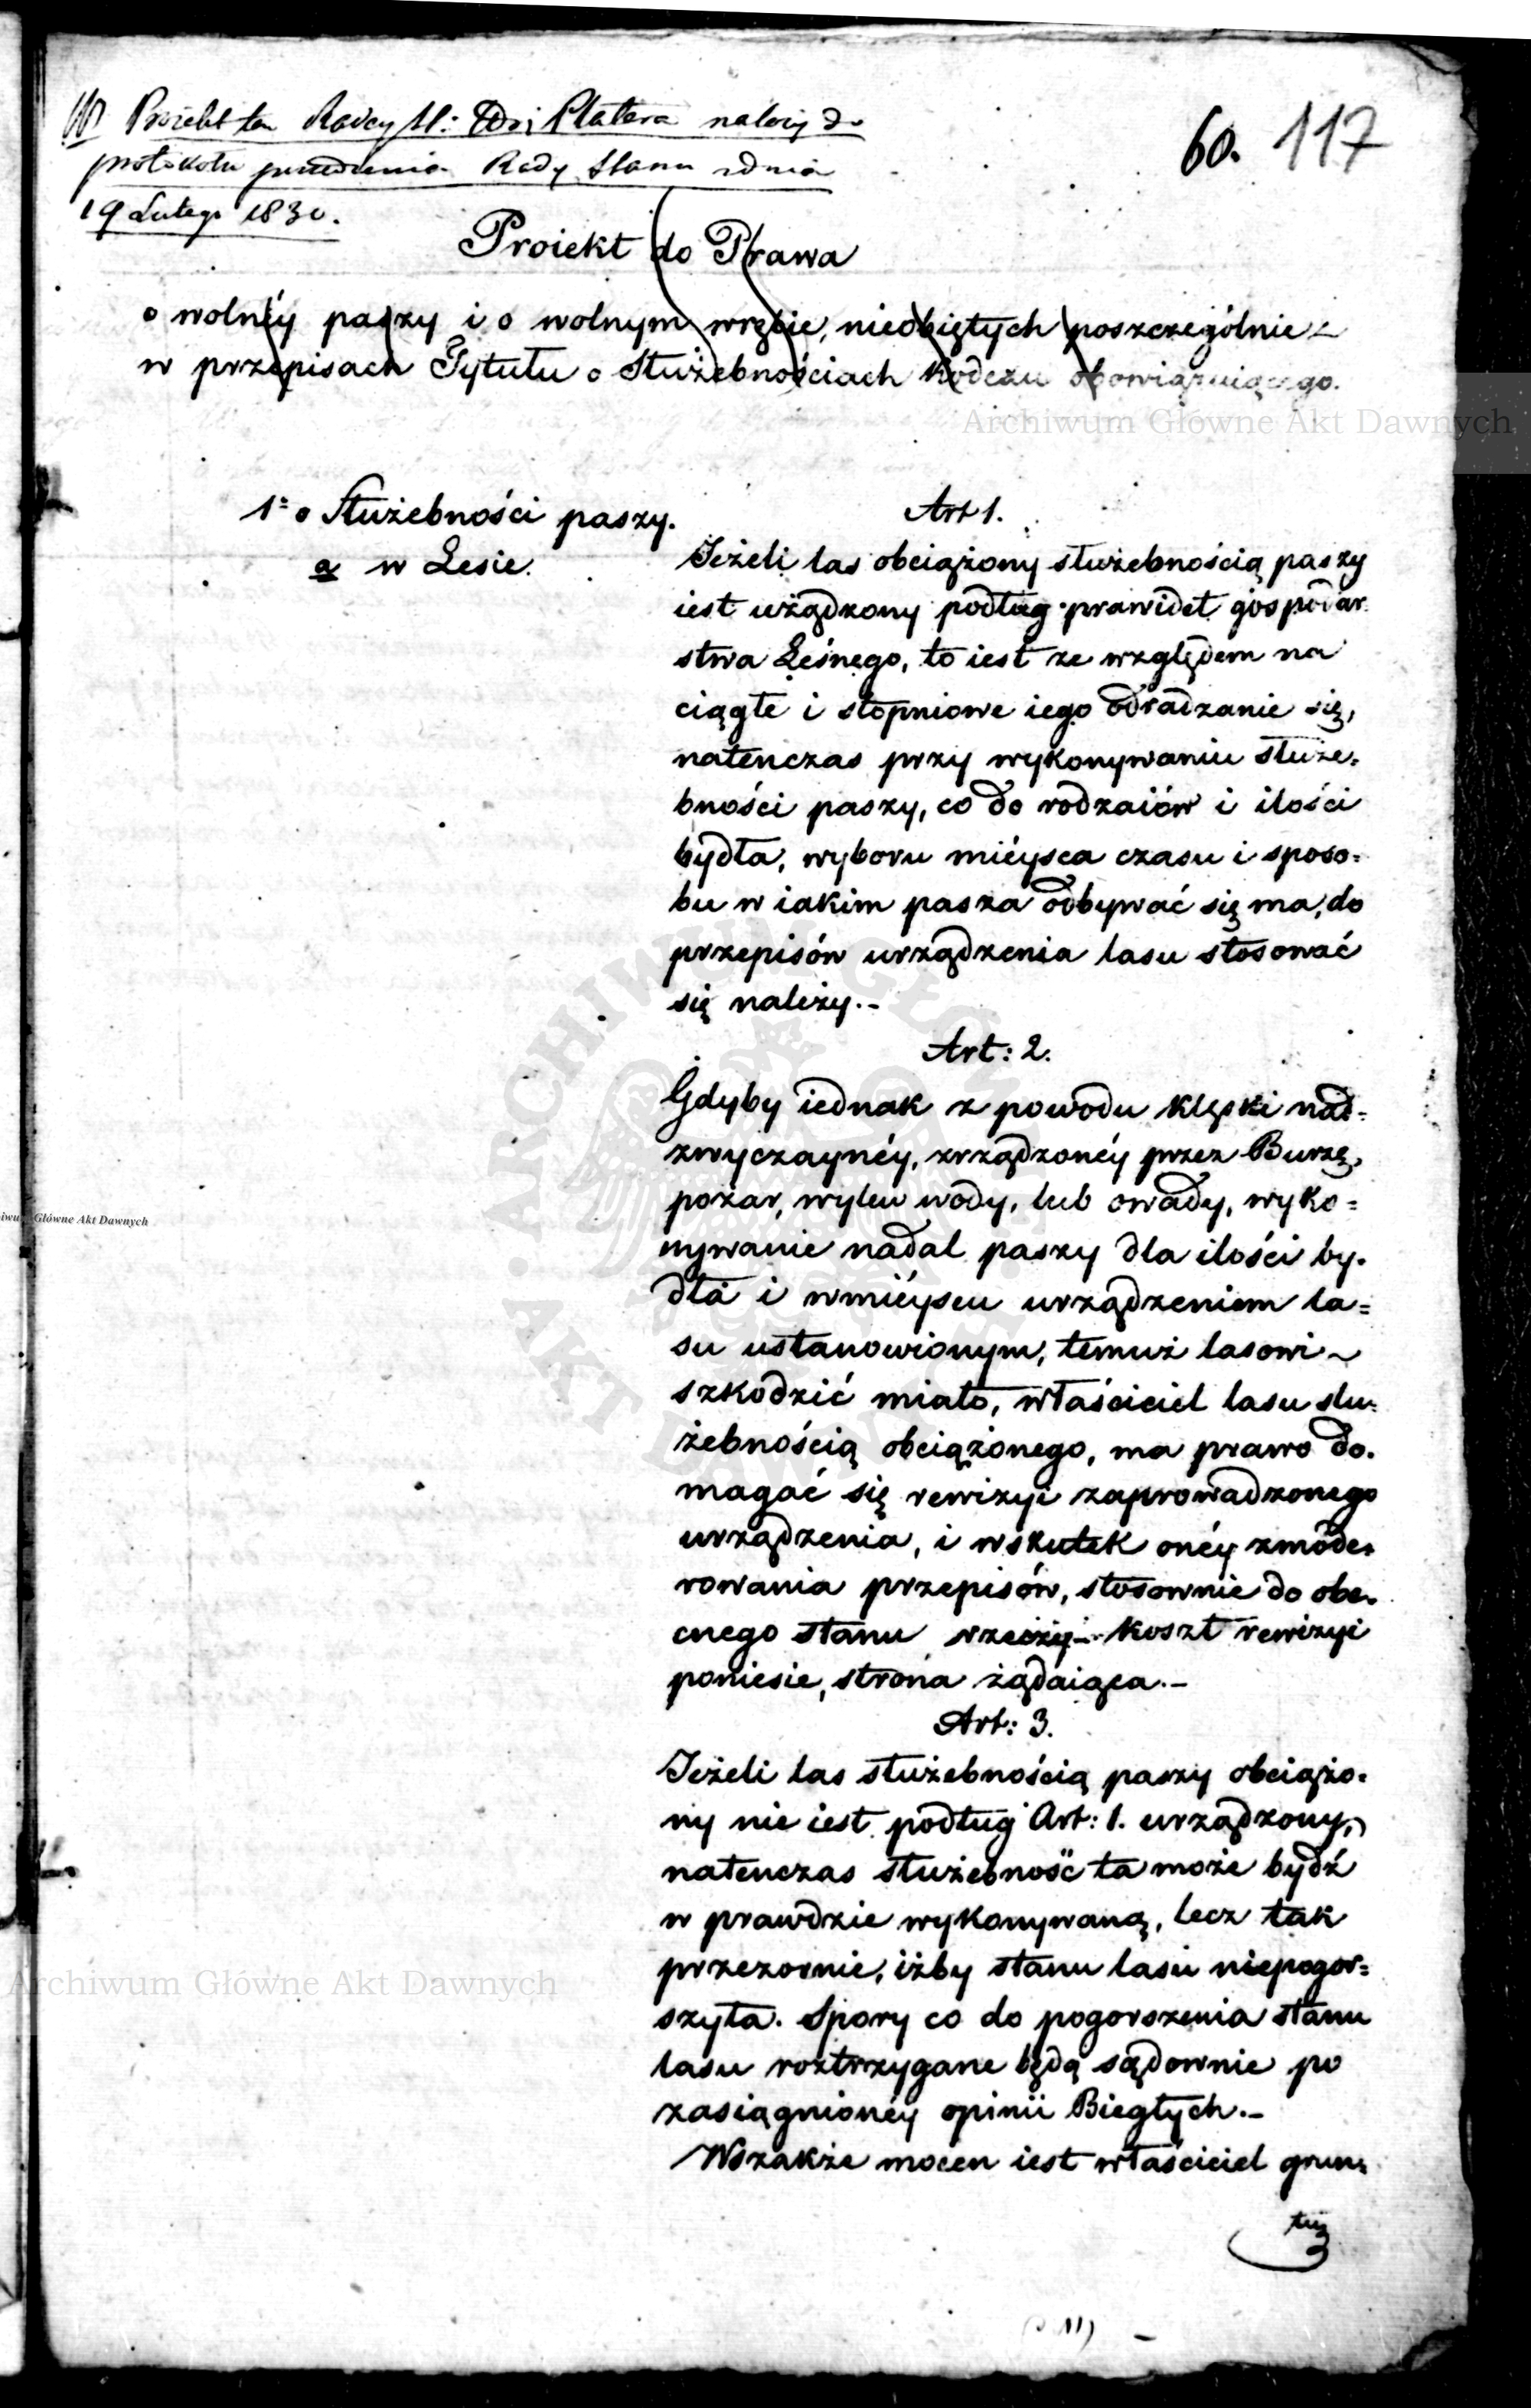 Proiekt ten Radcy St: Platera należy do
protokołu posiedzenia Rady Stanu z dnia
19 Lutego 1830.
60. 117
Proiekt do Prawa
o wolnéy paszy i o wolnym wrębie, nieobiętych poszczególnie
w przepisach Tytułu o Służebnościach Kodexu obowiązuiącego.
Archiwum Główne Akt Dawnych
1º o Służebności paszy.
a w Lesie.
Art 1.
Jeżeli las obciążony służebnością paszy
iest użądzony podług prawideł gospodar
stwa Leśnego, to iest ze względem na
ciągłe i stopniowe iego odradzanie się,
natenczas przy wykonywaniu służe=
bności paszy, co do rodzaiów i ilości
bydła, wyboru mieysca czasu i sposo=
bu w iakim pasza odbywać się ma, do
przepisów urządzenia lasu stosować
się należy.-
Art: 2.
Gdyby iednak z powodu klęski nad=
zwyczaynéy, zrządzonéy przez Burzę,
pożar, wylew wody, lub owady, wyko=
nywanie nadal paszy dla ilości by=
dła i w miéyscu urządzeniem la=
su ustanowionym, temuż lasowi
szkodzić miało, właściciel lasu słu=
żebnością obciążonego, ma prawo do=
magać się rewizyi zaprowadzonego
urządzenia, i wskutek onéy zmode=
rowania przepisów, stosownie do obe=
cnego stanu rzeczy.- Koszt rewizyi
poniesie, strona żądaiąca.-
Art: 3.
Jeżeli las służebnością paszy obciążo=
ny nie iest podług Art: 1. urządzony,
natenczas służebność ta może bydź
w prawdzie wykonywaną, lecz tak
przezornie, iżby stanu lasu niepogor=
szyła. Spory co do pogorszenia stanu
lasu roztrzygane będą sądownie po
zasiągnionéy opinii Biegłych.-
Wszakże mocen iest właściciel grun=
tu
Archiwum Główne Akt Dawnych
Główne Akt Dawnych
ARCHIWUM GŁÓWNE AKT DAWNYCH